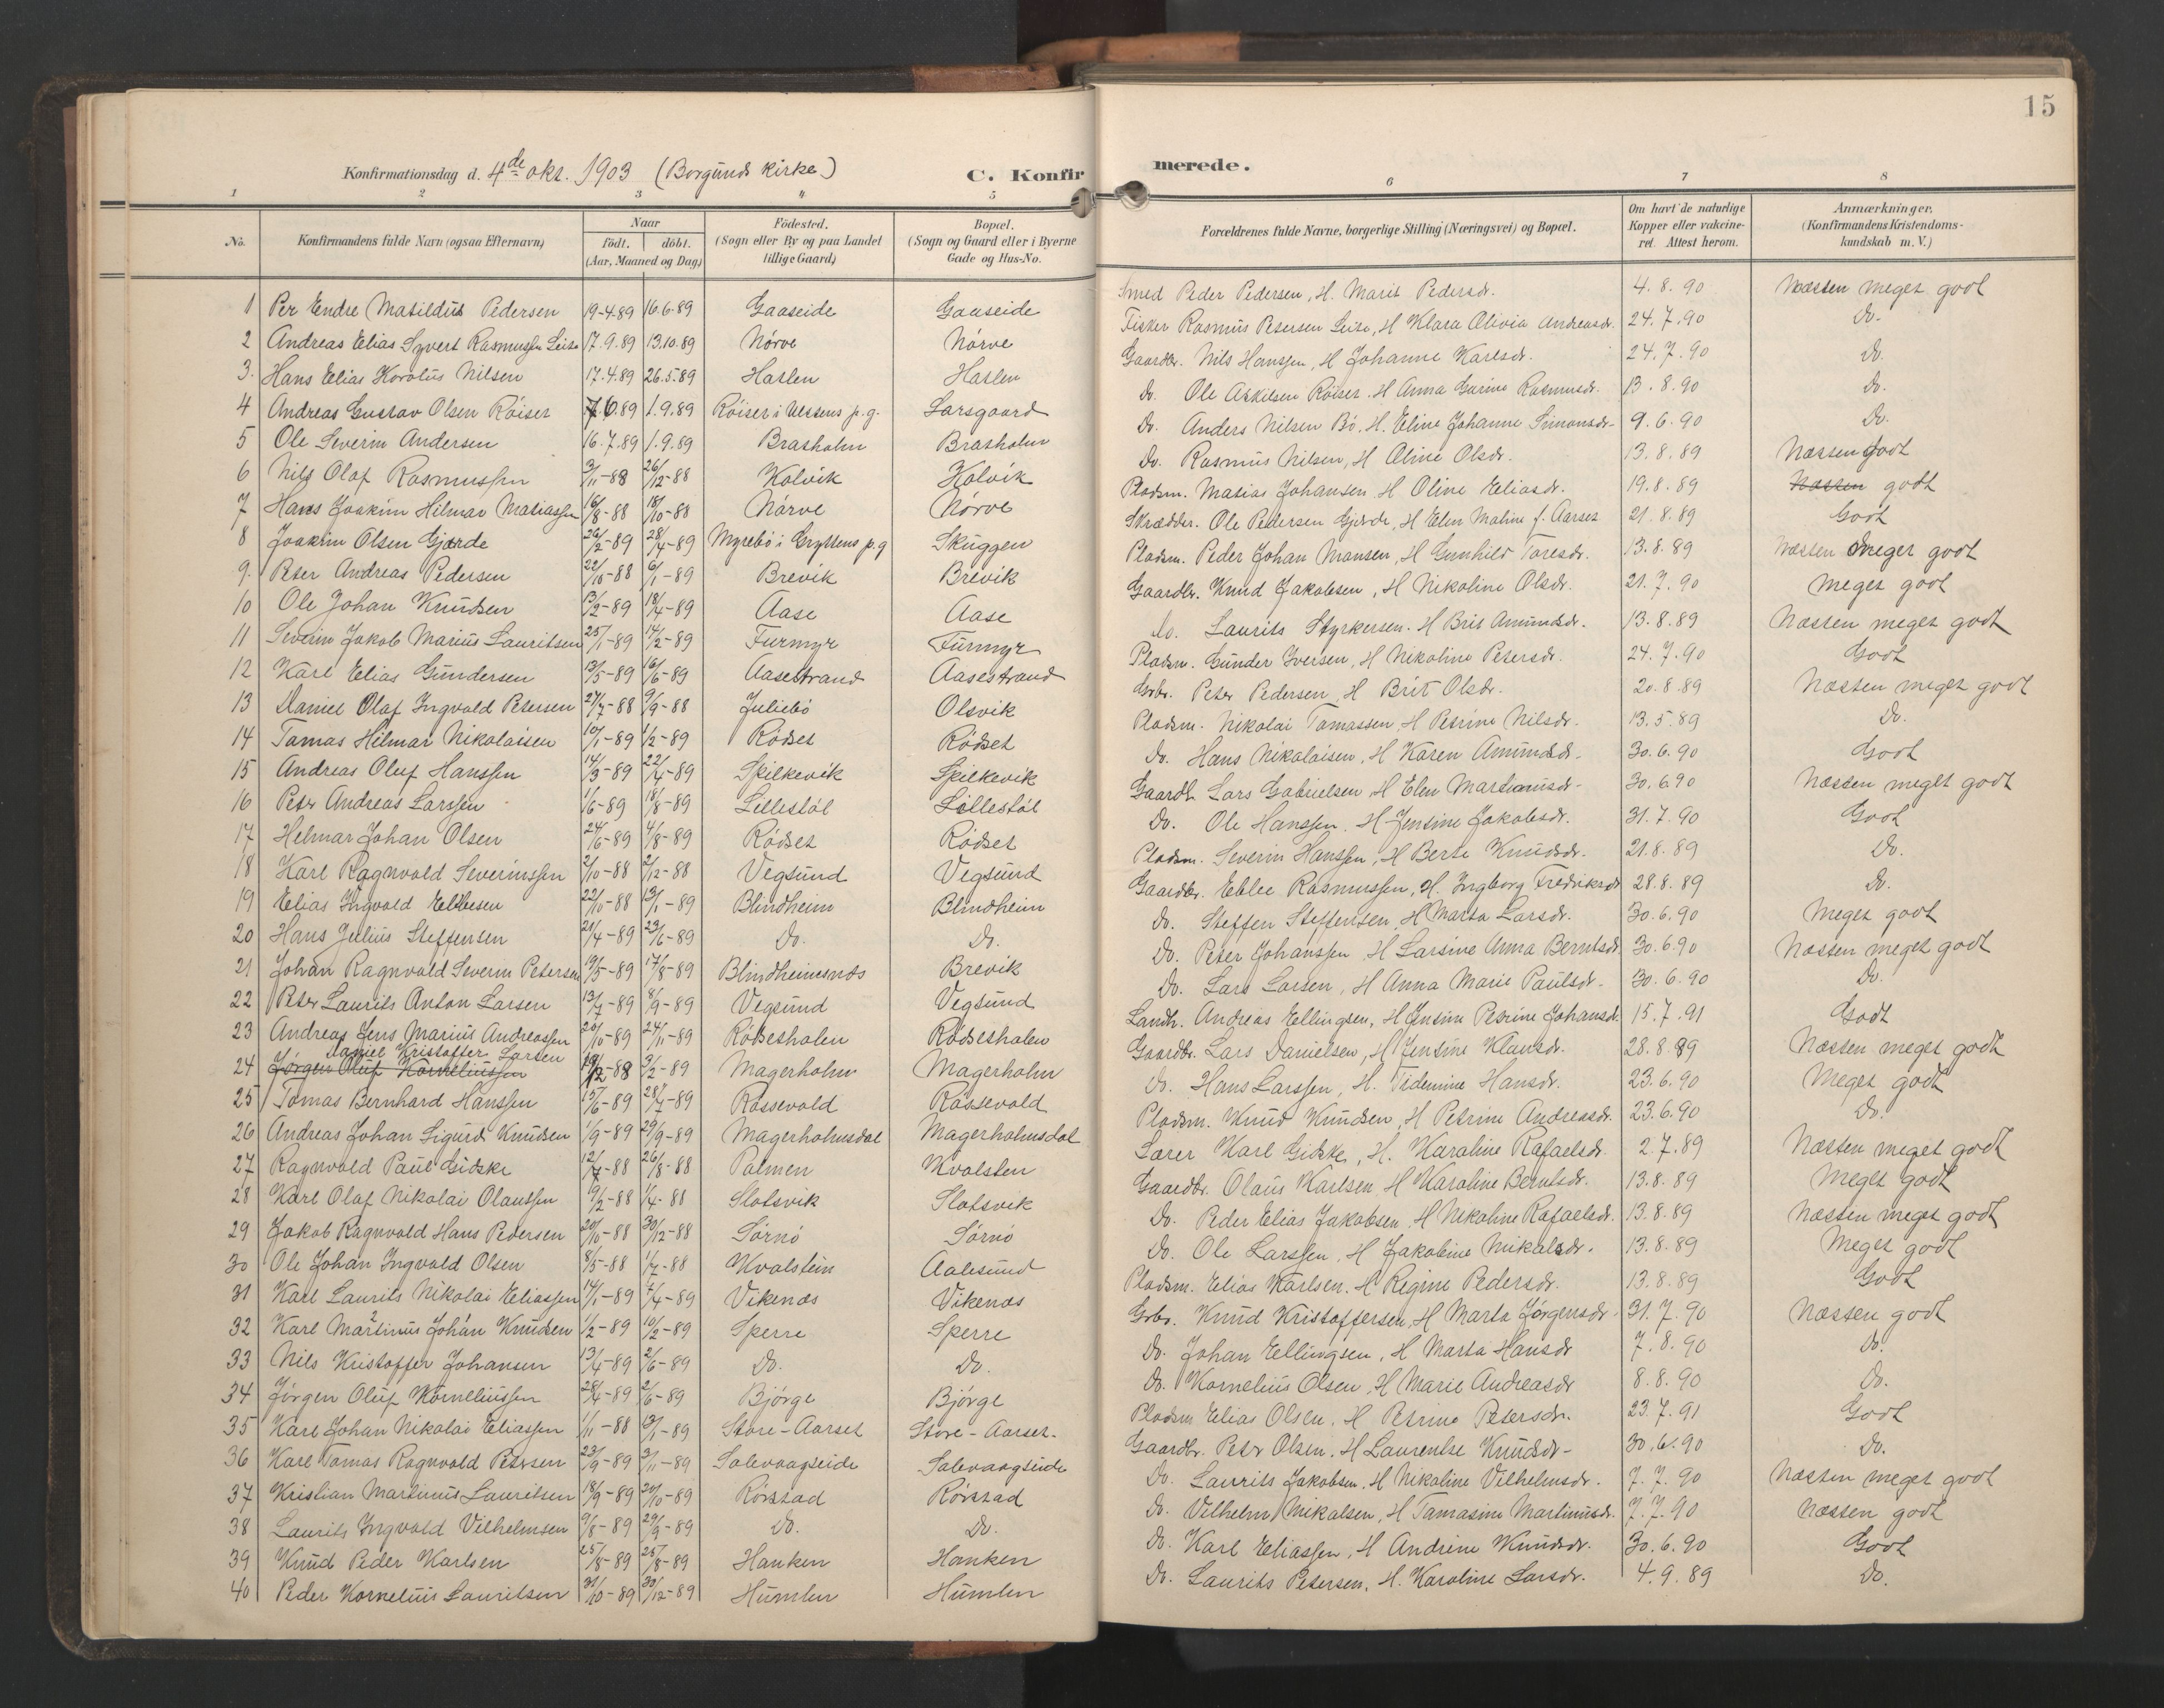 15
Konfirmationsdag d. 4de okt. 1903 (Borgund kirke) C. Konfirmerede.
1 2 3 4 5 6 7 8
No. Konfirmandens fulde Navn (ogsaa Efternavn) Naar födt. döbt. (Aar, Maaned og Dag) Födested. (Sogn eller By og paa Landet tillige Gaard) Bopæl. (Sogn og Gaard eller i Byerne Gade og Hus-No. Forældrenes fulde Navne, borgerlige Stilling (Næringsvei) og Bopæl. Om havt de naturlige Kopper eller vakcineret. Attest herom. Anmærkninger. (Konfirmandens Kristendomskundskab m. V.)
1 Per Endre Matildus Pedersen 19-4.89 16.6.89 Gaaseide Gaaseide Smed Peder Pedersen, H. Marit Pedersdr. 4.8.90 Næsten meget godt
2 Andreas Elias Syvert Rasmussen Leite 17.9.89 13.10.89 Nørve Nørve Fisker Rasmus Petersen Leite, H Klara Olivia Andreasdr. 24.7.90 Do.
3. Hans Elias Karolus Nilsen 17.4.89 26.5.89 Hatlen Hatlen Gaardbr. Nils Hanssen, H Johanne Karlsdr. 24.7.90 Do.
4 Andreas Gustav Olsen Röiset 7.6.89 1.9.89 Röiset i Ulstens p.g. Larsgaard Do. Ole Askilsen Röiset. H Anna Gurine Rasmusdr. 13.8.90 Do.
5 Ole Severin Andersen 16.7.89 1.9.89 Brasholm Brasholm Do. Anders Nilsen Bö, H. Eline Johanne Simonsdr- 9.6.90 Do.
6 Nils Olaf Rasmussen 3/11-88 26/12-88 Kolvik Kolvik Do. Rasmus Nilsen, H Oline Olsdr. 13.8.89 Næsten godt
7 Hans Joakim Hilmar Matiassen 16/8-88 18/10-88 Nørve Nørve Pladsm. Matias Johansen H Oline Eliasdr. 19.8.89 Næsten godt
8 Joakim Olsen Gjærde 26/2-89 28/4-89 Myrebö i Gryttens p.g Skuggen Skrædder. Ole Pedersen Gjærde, H Elen Maline f. Aarset 21.8.89 Godt
9. Peter Andreas Pedersen 22/10-88 6/1-89 Brevik Brevik Pladsm. Peder Johan Monsen, H Gunhild Toresdr. 13.8.89 Næsten meget godt
10 Ole Johan Knudsen 13/2-89 18/4-89 Aase Aase Gaardbr. Knud Jakobsen, H Nikoline Olsdr. 21.7.90 Meget godt
11 Severin Jakob Marius Lauritsen 25/1-89 14/2-89 Furmyr Furmyr Do. Laurits Styrkersen. H Brit Amundsdr. 13.8.89 Næsten meget godt
12 Karl Elias Gundersen 13/5-89 16/6-89 Aasestrand Aasestrand Pladsm. Gunder Iversen, H Nikoline Petersdr. 24.7.90 Godt
13 Daniel Olaf Ingvald Petersen 27/7-88 9/9-88 Juliebö Olsvik Grbr. Peter Pedersen, H Brit Olsdr. 20.8.89 Næsten meget godt
14 Tomas Hilmar Nikolaisen 10/1-89 1/2-89 Rödset Rödset Pladsm. Nikolai Tomassen, H Petrine Nilsdr. 13.5.89 Do.
15 Andreas Oluf Hanssen 14/3-89 22/4-89 Spilkevik Spilkevik Do. Hans Nikolaisen, H Karen Amundsdr. 30.6.90 Godt
16 Peter Andreas Larssen 1/6-89 18/8-89 Lillestöl Lillestöl Gaardb. Lars Gabrielsen H Elen Martianusdr- 30.6.90 Næsten meget godt
17 Helmar Johan Olsen 24/6-89 4/8-89 Rödset Rödset Do. Ole Hanssen. H Jensine Jakobsdr. 31.7.90 Godt
18 Karl Ragnvald Severinssen 2/10-88 2/12-88 Vegsund Vegsund Pladsm. Severin Hanssen, H Berte Knudsdr. 21.8.89 Do.
19 Elias Ingvald Ellbesen 22/10-88 13/1-89 Blindheim Blindheim Gaardbr. Ebbe Rasmussen, H. Ingborg Fredriksdr 28.8.89 Do.
20 Hans Julius Steffensen 21/4-89 23/6-89 Do. Do. Do. Steffen Steffensen, H Marta Larsdr. 30.6.90 Meget godt
21 Johan Ragnvald Severin Petersen 19/5-89 17/8-89 Blindheimsnæs Brevik Do. Peter Johanssen, H Larsine Anna Berntsdr. 30.6.90 Næsten meget godt
22 Peter Laurits Anton Larsen 13/7-89 8/9-89 Vegsund Vegsund Do. Lars Larsen, H Anna Marie Paulsdr. 30.6.90 Do.
23 Andreas Jens Marius Andreassen 20/10-89 24/11-89 Rödsetholen Rödsetholen Landh. Andreas Ellingsen, H Jensine Petrine Johansdr. 15.7.91 Godt
Daniel Kristoffer Larsen
24 Jørgen Oluf Korneliussen 19/12-88 3/2-89 Magerholm Magerholm Gaardbr. Lars Danielsen, H Jensine Klausdr. 28.8.89 Næsten meget godt
25 Tomas Bernhard Hanssen 15/6-89 28/7-89 Røssevold Røssevold Do. Hans Larssen, H. Tidemine Hansdr. 23.6.90 Meget godt
26 Andreas Johan Sigurd Knudsen 1/9-89 29/9-89 Magerholmsdal Magerholmsdal Pladsm. Knud Knudsen, H Petrine Andreasdr. 23.6.90 Do.
27 Ragnvald Paul Gidske 12/7-88 26/8-88 Palmen Kvalsten Lærer Karl Gidske, H. Karoline Rafaelsdr. 2.7.89 Næsten meget godt
28 Karl Olaf Nikolai Olaussen 19/2-88 1/4-88 Slotsvik Slotsvik Gaardbr. Olaus Karlsen H Karoline Berntsdr. 13.8.89 Meget godt
29 Jakob Ragnvald Hans Pedersen 20/10-88 30/12-88 Sørnö Sørnö Do. Peder Elias Jakobsen H Nikoline Rafaelsdr. 13.8.89 Næsten meget godt
30 Ole Johan Ingvald Olsen 8/5-88 1/7-88 Kvalstein Aalesund Do. Ole Larssen, H Jakobine Mikalsdr. 13.8.89 Meget godt
31 Karl Laurits Nikolai Eliassen 14/1-89 7/4-89 Vikenæs Vikenæs Pladsm. Elias Karlsen. H Regine Pedersdr. 13.8.89 Godt
32 Karl Martinus Johan Knudsen 1/2-89 10/2-89 Sperre Sperre Grbr. Knud Kristoffersen, H Marta Jørgensdr. 31.7.90 Næsten godt
33 Nils Kristoffer Johansen 13/4-89 2/6-89 Do. Do. Do. Johan Ellingsen, H Marta Hansdr 7.8.90 Do.
34 Jörgen Oluf Korneliussen 28/4-89 2/6-89 Bjórge Bjórge Do. Kornelius Olsen, H Marie Andreasdr 8.8.90 Do.
35 Karl Johan Nikolai Eliassen 1/11-88 13/1-89 Store-Aarset Store-Aarset. Pladsm Elias Olsen, H Petrine Petersdr. 23.7.91 Godt
36 Karl Tomas Ragnvald Petersen 23/9-89 3/11-89 Solevaagseide Solevaagseide Gaardbr. Peter Olsen. H Laurentse Knudsdr- 30.6.90 Do.
37 Kristian Martinus Lauritsen 18/9-89 20/10-89 Rörstad Rörstad Do. Laurits Jakobsen. H Nikoline Vilhelmsdr. 7.7.90 Næsten meget godt
38 Laurits Ingvald Vilhelmsen 9/8-89 29/9-89 Do. Do. Do. Vilhelm Mikalsen, H Tamasine Martinusdr. 7.7.90 Næsten godt
39 Knud Peder Karlsen 25/8-89 25/8-89 Hanken Hanken Do. Karl Eliassen, H Andrine Knudsdr. 30.6.90 Godt
40 Peder Kornelius Lauritsen 31/10-89 30/12-89 Humlen Humlen Do. Laurits Petersen, H. Karoline Larsdr. 4.9.89 Do.